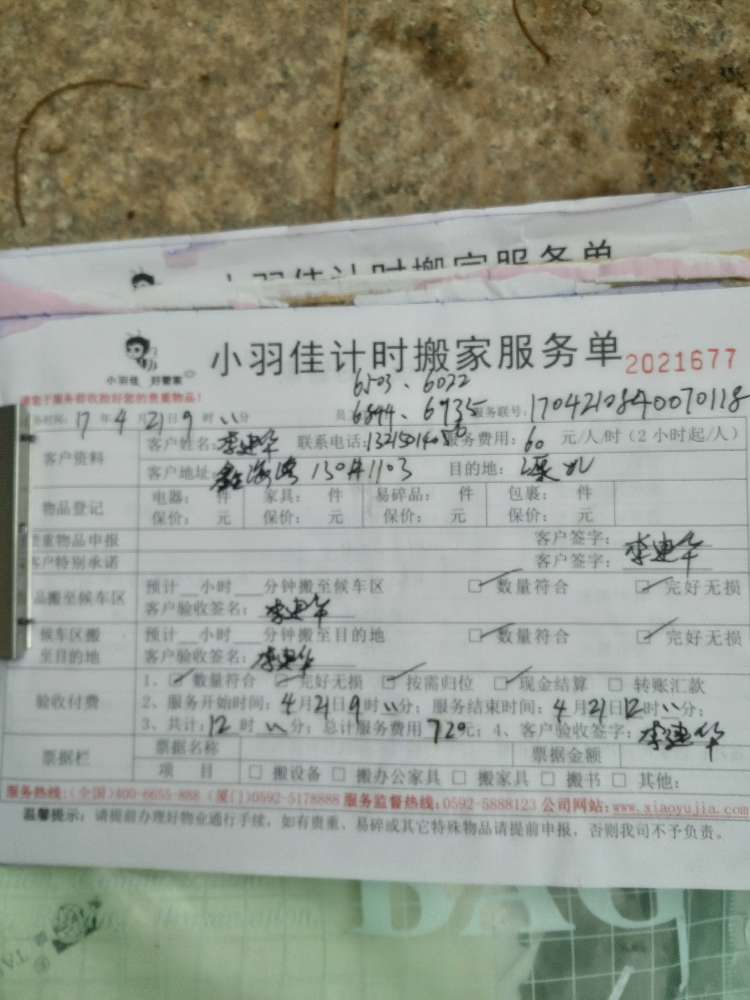 小羽佳计时搬家服务单
小羽佳 好管家
小羽佳计时搬家服务单 2021677
请您于服务前收拾好您的贵重物品!
6503、6022
务时间: 17年4月21日9时 分 员 6844、6935 服务联号: 1704210840070118
客户资料
客户姓名: 李建华 联系电话: 服务费用: 60 元/人/时(2小时起/人)
客户地址: 海湾 目的地:
物品登记
电器: 件 家具: 件 易碎品: 件 包裹: 件
保价: 元 保价: 元 保价: 元 保价: 元
贵重物品申报 客户签字: 李建华
客户特别承诺 客户签字:
品搬至候车区
预计__小时__分钟搬至候车区 ☑数量符合 ☑完好无损
客户验收签名: 李建华
候车区搬至目的地
预计__小时__分钟搬至目的地 ☑数量符合 ☑完好无损
客户验收签名: 李建华
验收付费
1、☑数量符合 ☑完好无损 ☑按需归位 ☑现金结算 ☐转账汇款
2、服务开始时间: 4月21日9时 分; 服务结束时间: 4月21日12时 分;
3、共计: 12时 分; 总计服务费用 720元; 4、客户验收签字: 李建华
票据栏
票据名称 票据金额
项 目 ☐搬设备 ☐搬办公家具 ☐搬家具 ☐搬书 ☐其他:
服务热线: (全国)400-6655-888 (厦门)0592-5178888 服务监督热线: 0592-5888123 公司网站: www.xiaoyujia.com
温馨提示: 请提前办理好物业通行手续, 如有贵重、易碎或其它特殊物品请提前申报, 否则我司不予负责。
BAG